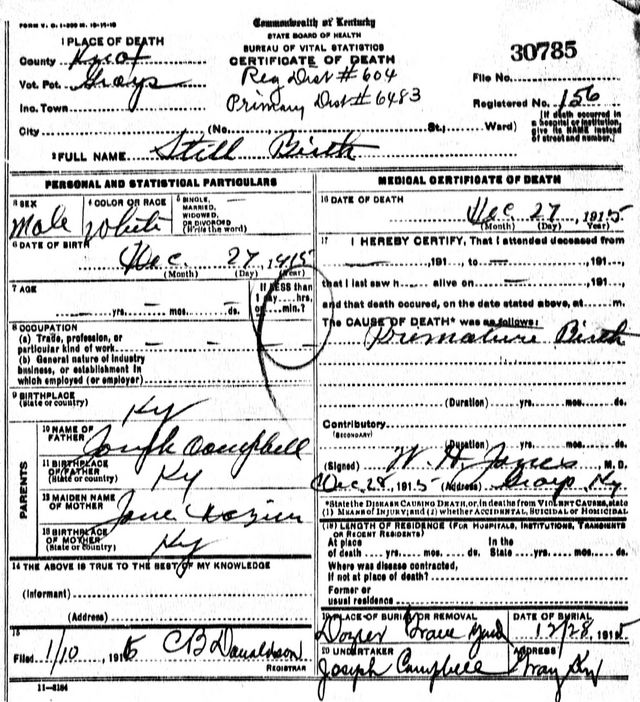 FORM V. S. 1-200 M. 10-11-10
Commonwealth of Kentucky
STATE BOARD OF HEALTH
BUREAU OF VITAL STATISTICS
CERTIFICATE OF DEATH
30785
1 PLACE OF DEATH
County Knox
Vot. Pct. Grays
Inc. Town
City (No. St.; Ward)
Reg Dist # 604
Primary Dist # 6483
File No.
Registered No. 156
[If death occurred in a hospital or institution, give its NAME instead of street and number.]
2 FULL NAME Still Birth
PERSONAL AND STATISTICAL PARTICULARS
3 SEX Male
4 COLOR OR RACE White
5 SINGLE, MARRIED, WIDOWED, OR DIVORCED (Write the word)
6 DATE OF BIRTH Dec. 27 1915
(Month) (Day) (Year)
7 AGE
yrs. mos. ds.
If LESS than 1 day....hrs. or....min.?
8 OCCUPATION
(a) Trade, profession, or particular kind of work
(b) General nature of industry business, or establishment in which employed (or employer)
9 BIRTHPLACE
(State or country) Ky
PARENTS
10 NAME OF FATHER Joseph Campbell
11 BIRTHPLACE OF FATHER
(State or country) Ky
12 MAIDEN NAME OF MOTHER Jane
13 BIRTHPLACE OF MOTHER
(State or country) Ky
14 THE ABOVE IS TRUE TO THE BEST OF MY KNOWLEDGE
(Informant)
(Address)
15
Filed 1/10, 1916 CB Donaldson
REGISTRAR
11-3184
MEDICAL CERTIFICATE OF DEATH
16 DATE OF DEATH
Dec 27, 1915
(Month) (Day) (Year)
17 I HEREBY CERTIFY, That I attended deceased from
—, 191...., to —, 191....,
that I last saw h.... alive on —, 191....,
and that death occured, on the date stated above, at....m.
The CAUSE OF DEATH* was as follows:
Premature Birth
(Duration) yrs. mos. ds.
Contributory
(SECONDARY)
(Duration) yrs. mos. ds.
(Signed) W. H. , M. D.
Dec 28, 1915 (Address) Grays Ky.
*State the DISEASE CAUSING DEATH, or, in deaths from VIOLENT CAUSES, state
(1) MEANS OF INJURY; and (2) whether ACCIDENTAL, SUICIDAL or HOMICIDAL
(18) LENGTH OF RESIDENCE (FOR HOSPITALS, INSTITUTIONS, TRANSIENTS OR RECENT RESIDENTS)
At place of death yrs. mos. ds. In the State yrs. mos. ds.
Where was disease contracted,
If not at place of death?
Former or
usual residence
19 PLACE OF BURIAL OR REMOVAL
Dozier Grave Yard
DATE OF BURIAL
12/28, 1915
20 UNDERTAKER
Joseph Campbell
ADDRESS
Gray Ky